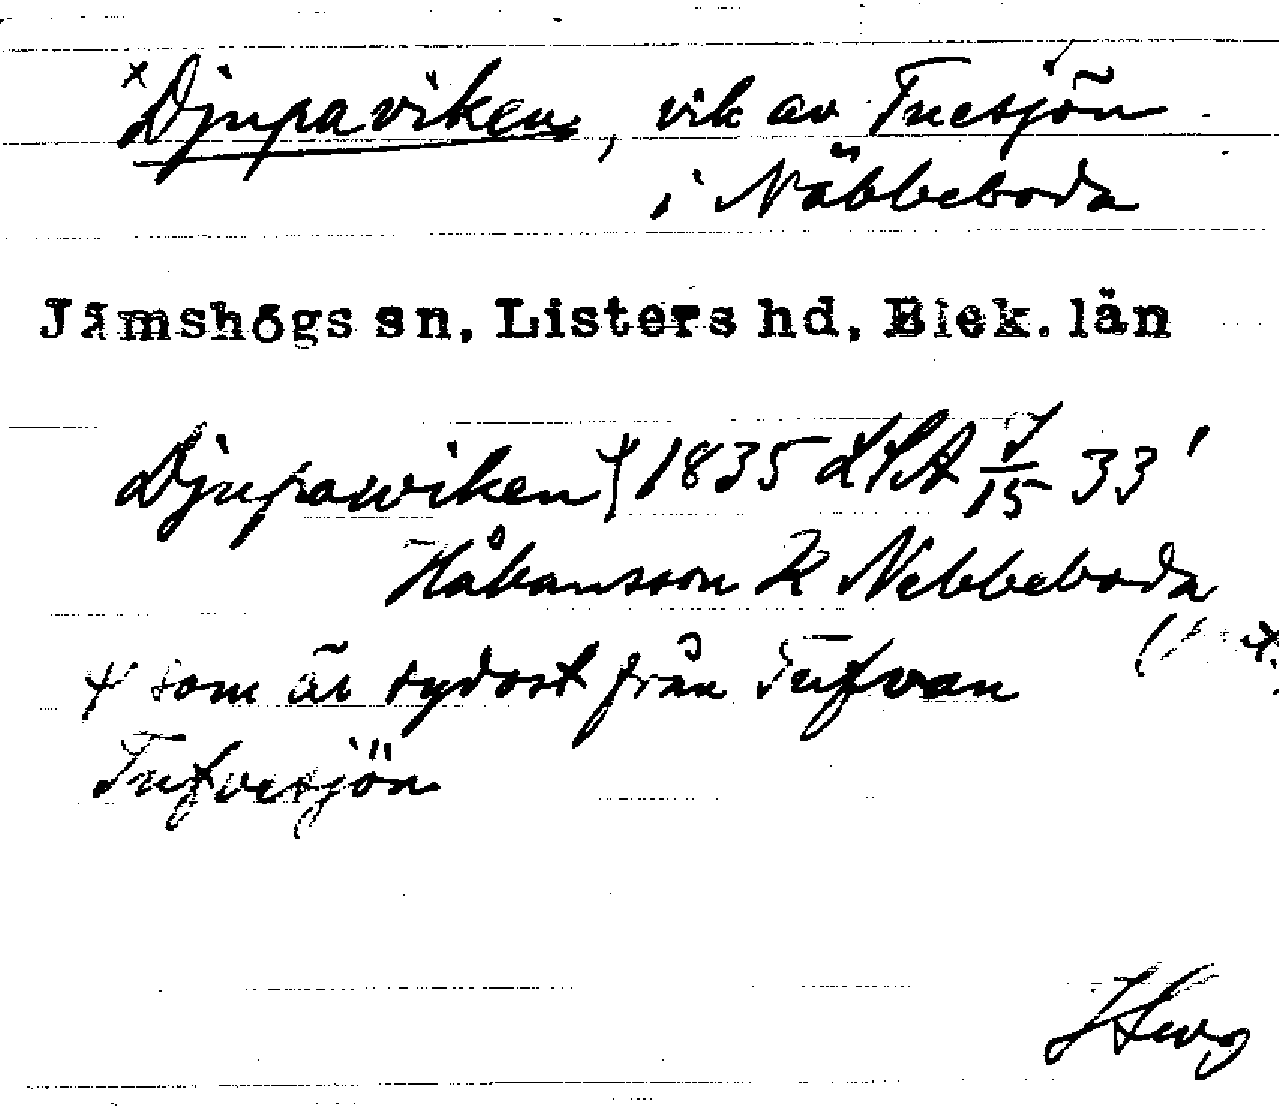 × Djupaviken, vik av Tuesjön
i Näbbeboda
Jämshögs sn, Listers hd, Blek. län
Djupawiken 1835 LSA J/15 33'
Håkansson K Nebbeboda
som är sydost från Tufvan
Tufvesjön